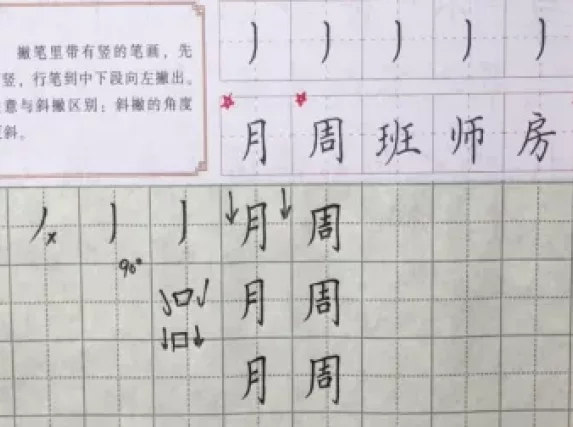 撇笔里带有竖的笔画，先
竖，行笔到中下段向左撇出。
意与斜撇区别：斜撇的角度
斜。
丿 丿 丿 丿 丿
月 周 班 师 房
丿 x 丿 丿 ↓ 月 ↓ 周
90°
口 月 周
↓ 口 ↓
月 周